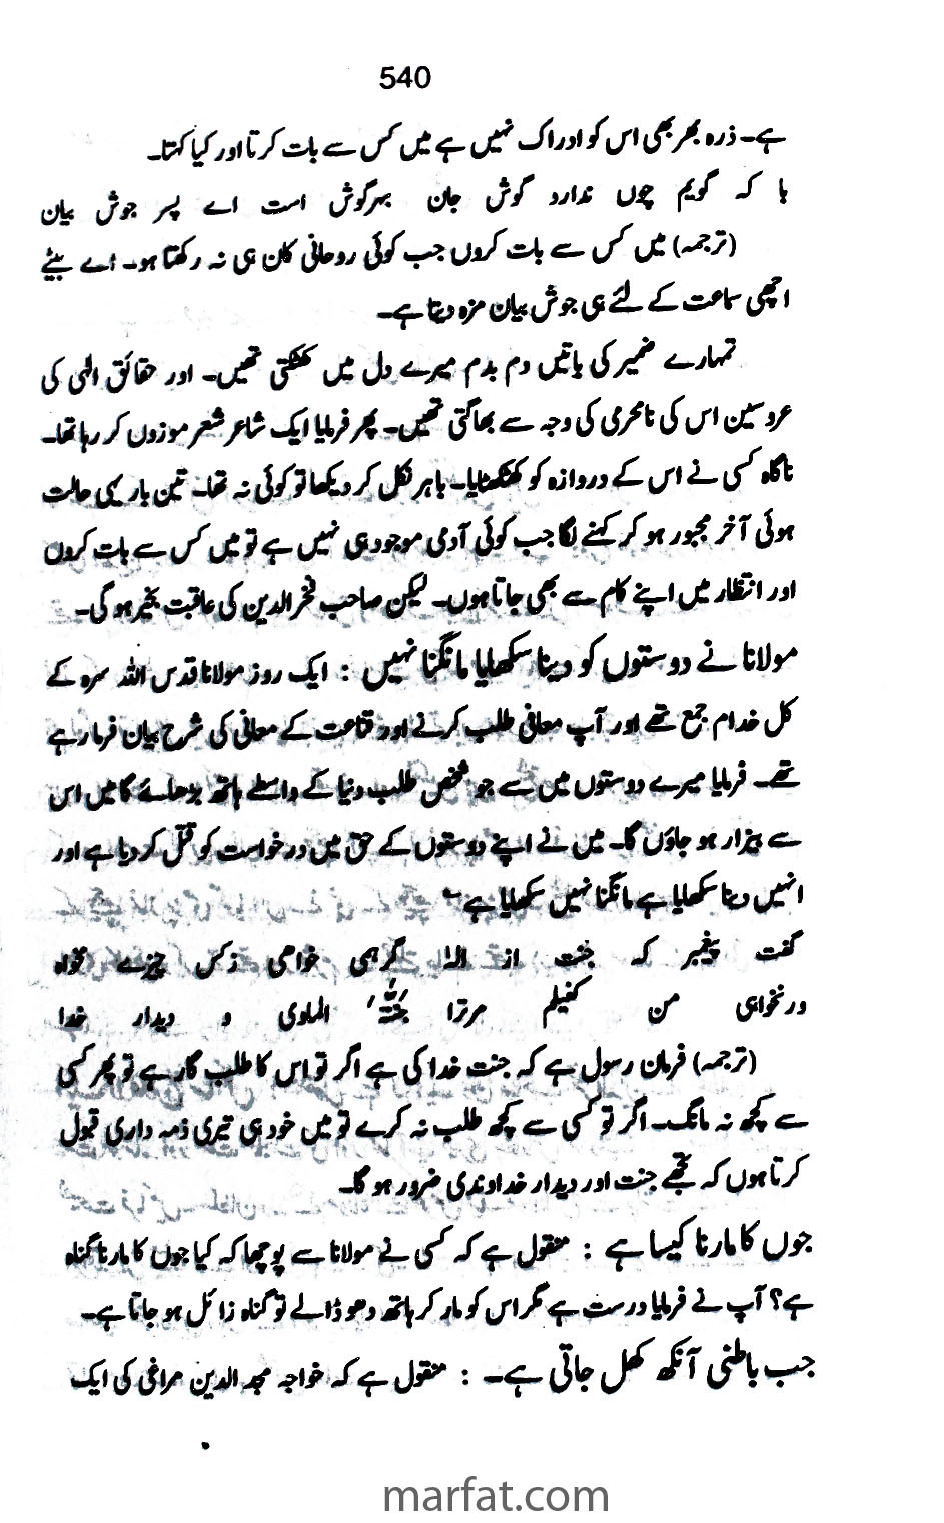 540
ہے۔ ذرہ بھر بھی اس کو ادراک نہیں ہے میں کس سے بات کرتا اور کیا کہتا۔
با کہ گویم چوں ندارد گوش جان بہرگوش است اے پسر جوش بیان
(ترجمہ) میں کس سے بات کروں جب کوئی روحانی کان ہی نہ رکھتا ہو۔ اے بیٹے
اچھی سماعت کے لئے ہی جوش بیان مزہ دیتا ہے۔
تمہارے ضمیر کی باتیں دم بدم میرے دل میں کھٹکتی تھیں۔ اور حقائق الٰہی کی
عروسین اس کی نامحرمی کی وجہ سے بھاگتی تھیں۔ پھر فرمایا ایک شاعر شعر موزوں کر رہا تھا۔
ناگاہ کسی نے اس کے دروازہ کو کھٹکھٹایا۔ باہر نکل کر دیکھا تو کوئی نہ تھا۔ تین بار یہی حالت
ہوئی آخر مجبور ہو کر کہنے لگا جب کوئی آدمی موجود ہی نہیں ہے تو میں کس سے بات کروں
اور انتظار میں اپنے کام سے بھی جاتا ہوں۔ لیکن صاحب فخرالدین کی عاقبت بخیر ہو گی۔
مولانا نے دوستوں کو دینا سکھلایا مانگنا نہیں : ایک روز مولانا قدس اللہ سرہ کے
کل خدام جمع تھے اور آپ معافی طلب کرنے اور قناعت کے معانی کی شرح بیان فرما رہے
تھے۔ فرمایا میرے دوستوں میں سے جو شخص طلب دنیا کے واسطے ہاتھ بڑھائے گا میں اس
سے بیزار ہو جاؤں گا۔ میں نے اپنے دوستوں کے حق میں درخواست کو قتل کر دیا ہے اور
انہیں دینا سکھلایا ہے مانگنا نہیں سکھلایا ہے
گفت پیغمبر کہ جنت از الہٰ گرہمی خواہی زکس چیزے مخواہ
ورنخواہی من کفیلم مرترا جنتہ الماوی و دیدار خدا
(ترجمہ) فرمان رسول ہے کہ جنت خدا کی ہے اگر تو اس کا طلب گار ہے تو پھر کسی
سے کچھ نہ مانگ۔ اگر تو کسی سے کچھ طلب نہ کرے تو میں خود ہی تیری ذمہ داری قبول
کرتا ہوں کہ تجھے جنت اور دیدار خداوندی ضرور ہو گا۔
جوں کا مارنا کیسا ہے : منقول ہے کہ کسی نے مولانا سے پوچھا کہ کیا جوں کا مارنا گناہ
ہے؟ آپ نے فرمایا درست ہے مگر اس کو مار کر ہاتھ دھو ڈالے تو گناہ زائل ہو جاتا ہے۔
جب باطنی آنکھ کھل جاتی ہے۔ : منقول ہے کہ خواجہ مجد الدین مراغی کی ایک
marfat.com